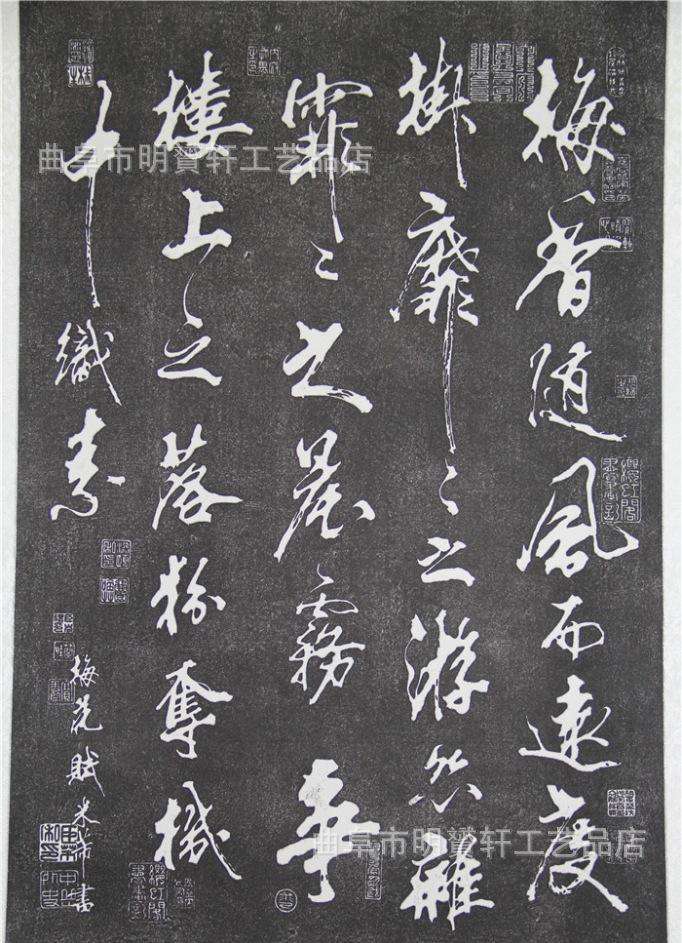 梅香随風而遠度
掛靡〻之游絲雜
霏〻之晨霧争
樓上之落粉奪機
中織素
梅花賦米芾書
曲阜市明轩工艺品店
曲阜市明轩工艺品店